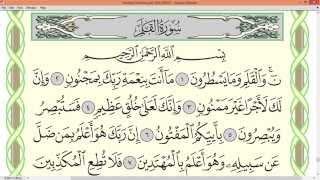 سُورَةُ القَلَمِ
بِسْمِ اللَّهِ الرَّحْمَٰنِ الرَّحِيمِ
نٓ وَالْقَلَمِ وَمَا يَسْطُرُونَ ١ مَا أَنتَ بِنِعْمَةِ رَبِّكَ بِمَجْنُونٍ ٢ وَإِنَّ
لَكَ لَأَجْرًا غَيْرَ مَمْنُونٍ ٣ وَإِنَّكَ لَعَلَىٰ خُلُقٍ عَظِيمٍ ٤ فَسَتُبْصِرُ
وَيُبْصِرُونَ ٥ بِأَييِّكُمُ الْمَفْتُونُ ٦ إِنَّ رَبَّكَ هُوَ أَعْلَمُ بِمَن ضَلَّ
عَن سَبِيلِهِ وَهُوَ أَعْلَمُ بِالْمُهْتَدِينَ ٧ فَلَا تُطِعِ الْمُكَذِّبِينَ